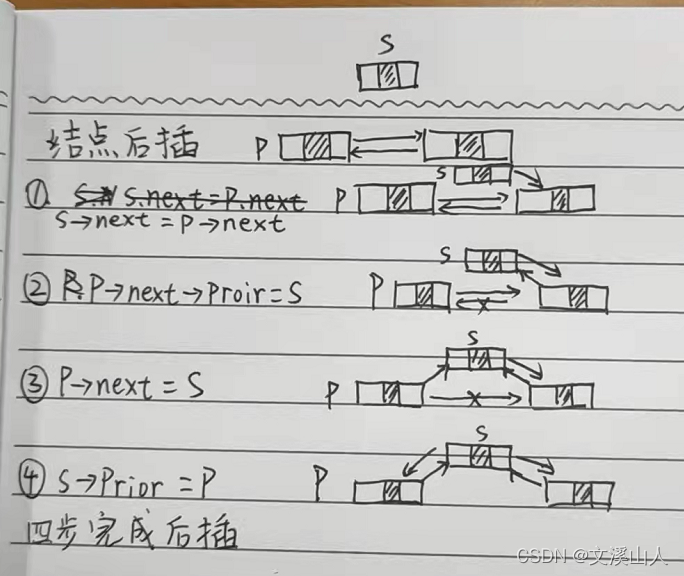 S
结点后插 P
① S.# S.next=P.next P S
S→next = P→next
② P.P→next→Proir=S P S
③ P→next = S P S
④ S→Prior = P P S
四步完成后插
CSDN @文溪山人